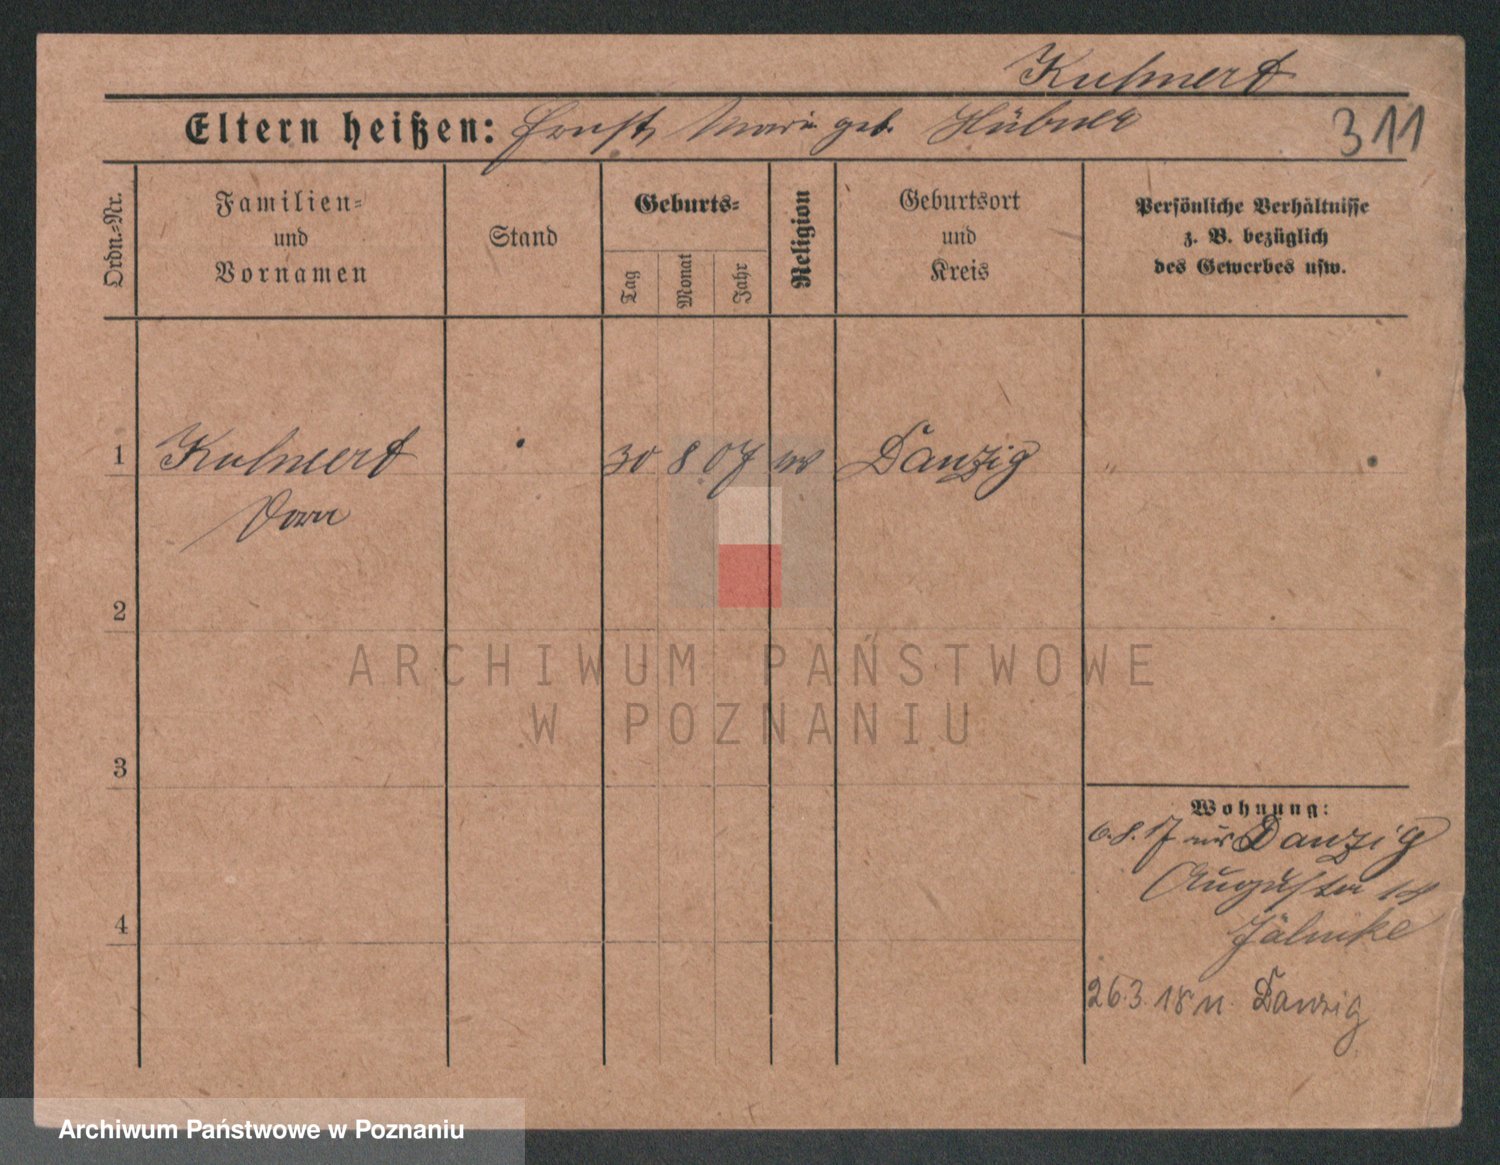 Kuhnert
Eltern heißen: Ernst, Marie geb. Hübner
311
Ordn.=Nr.
Familien=
und
Vornamen
Stand
Geburts=
Tag
Monat
Jahr
Religion
Geburtsort
und
Kreis
Persönliche Verhältnisse
z. B. bezüglich
des Gewerbes usw.
1 Kuhnert 30 8 07 Danzig
Dora
2
3
4
Wohnung:
6.8.17 Danzig
Augusta
26.3.18 n. Danzig
ARCHIWUM PAŃSTWOWE
W POZNANIU
Archiwum Państwowe w Poznaniu